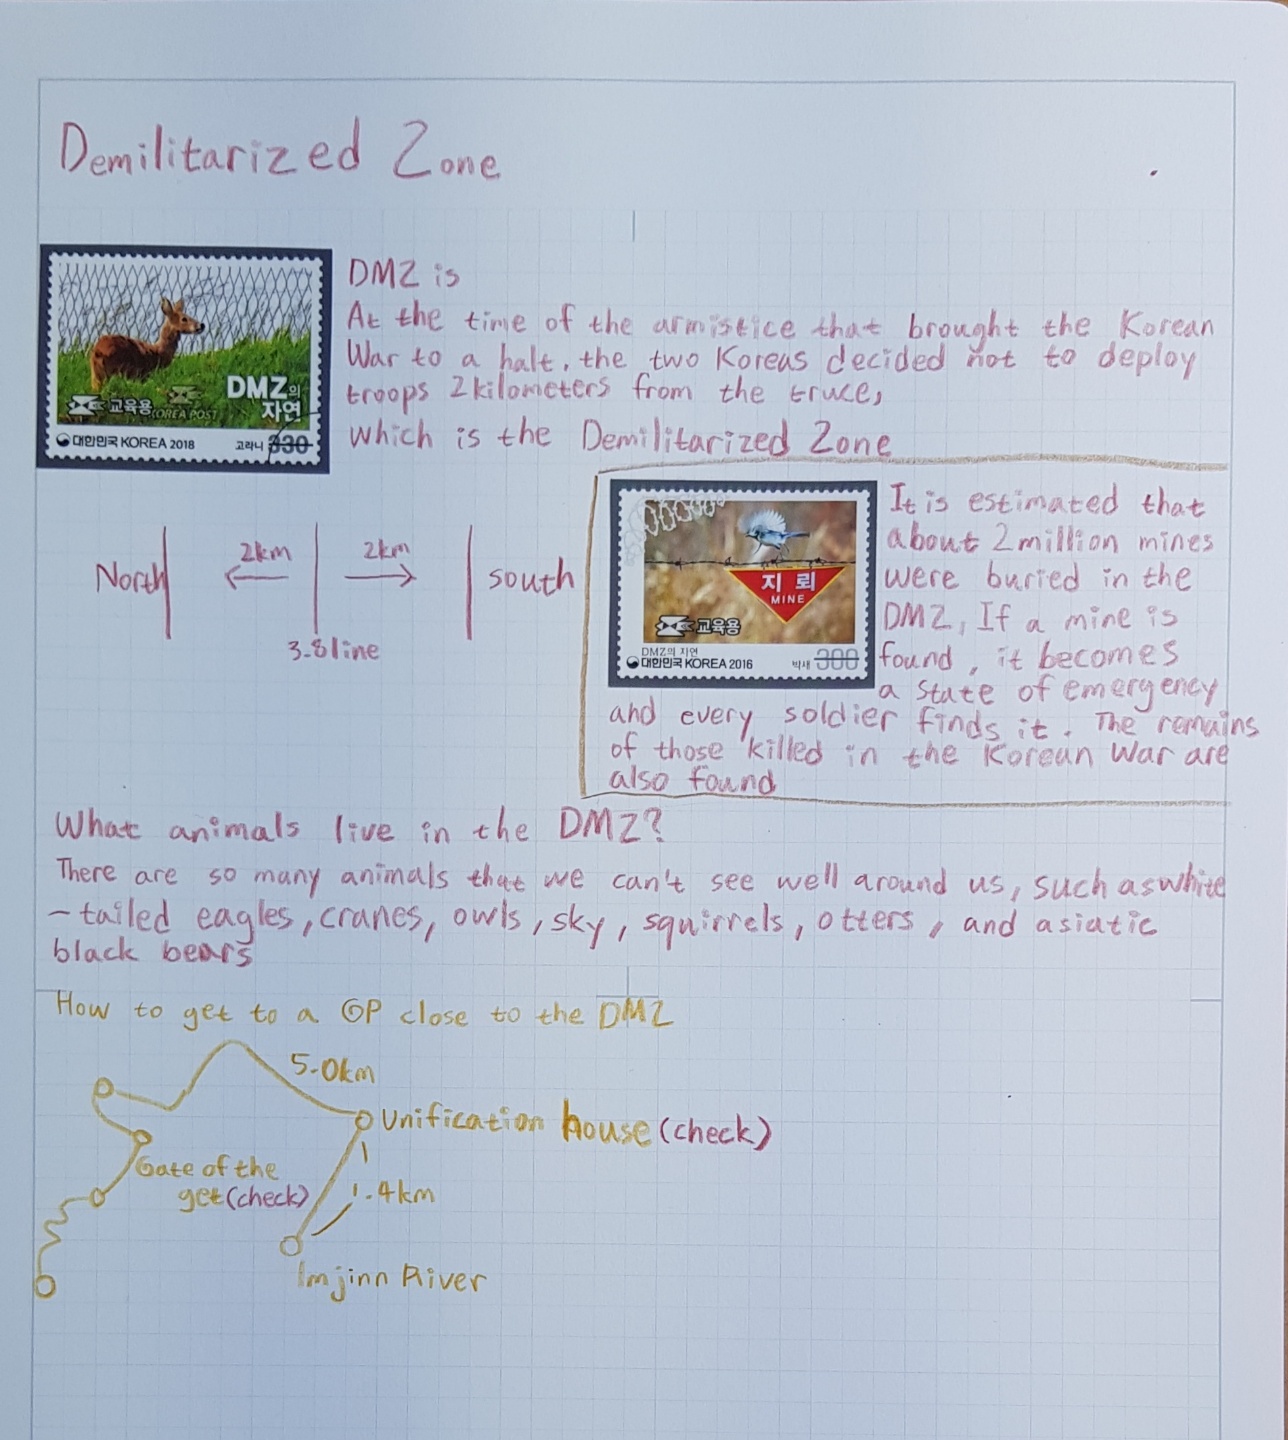 Demilitarized Zone
DMZ의
자연
교육용
KOREA POST
대한민국 KOREA 2018
고라니 330
DMZ is
At the time of the armistice that brought the Korean
War to a halt, the two Koreas decided not to deploy
troops 2kilometers from the truce,
which is the Demilitarized Zone
North
2km
2km
south
3.8line
지뢰
MINE
교육용
DMZ의 자연
대한민국 KOREA 2016
박새 300
It is estimated that
about 2million mines
were buried in the
DMZ, If a mine is
found, it becomes
a state of emergency
and every soldier finds it. The remains
of those killed in the Korean War are
also found
What animals live in the DMZ?
There are so many animals that we can't see well around us, such as white
-tailed eagles, cranes, owls, sky, squirrels, otters, and asiatic
black bears
How to get to a GP close to the DMZ
5.0km
Unification house (check)
Gate of the
get (check)
1.4km
Imjinn River